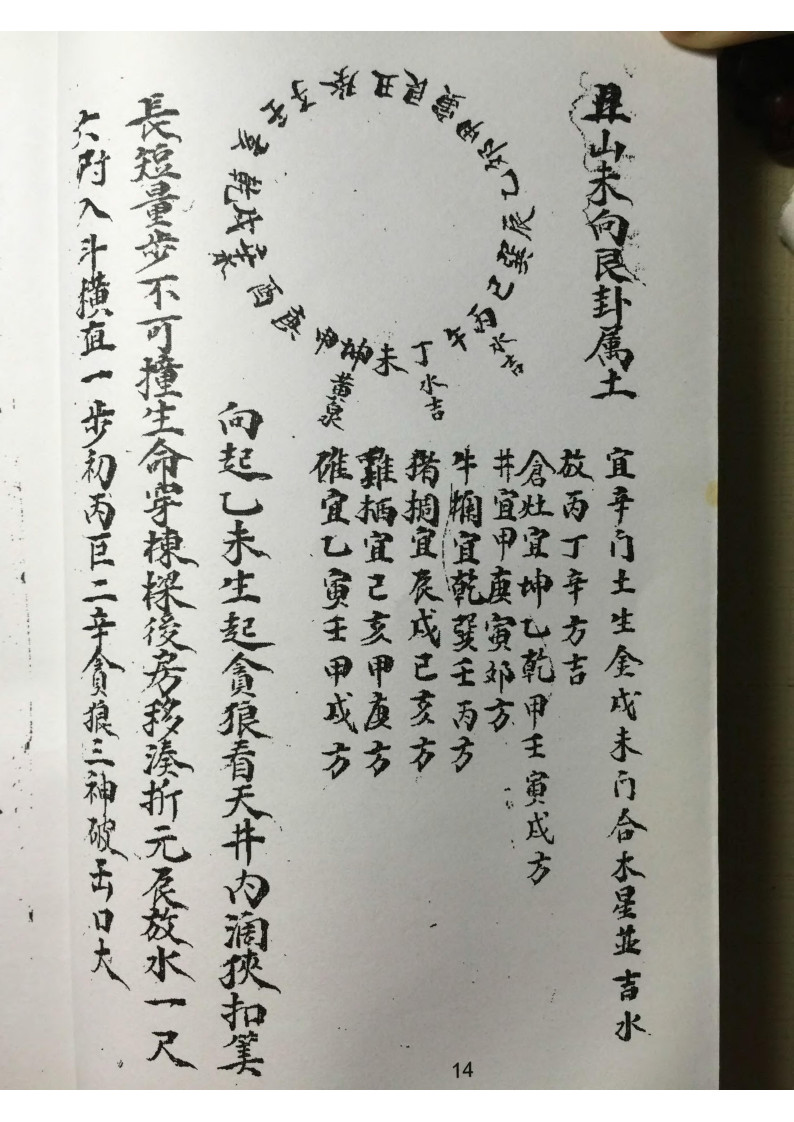 丑山未向艮卦属土
宜辛门土生金戌未门合木星並吉水
放丙丁辛方吉
倉灶宜坤乙乾甲壬寅戌方
井宜甲庚寅卯方
牛欄宜乾巽壬丙方
猪搁宜辰戌巳亥方
雞栖宜己亥甲庚方
碓宜乙寅壬甲戌方
壬子癸丑艮寅甲卯乙辰巽巳丙午丁未坤申庚酉辛戌乾亥
水吉
水吉
黄泉
向起乙未生起貪狼看天井内濶狹扣筭
長短量步不可撞生命穿棟樑後房移湊折元辰放水一尺
六附入斗横直一步初丙巨二辛貪狼三神破出口大